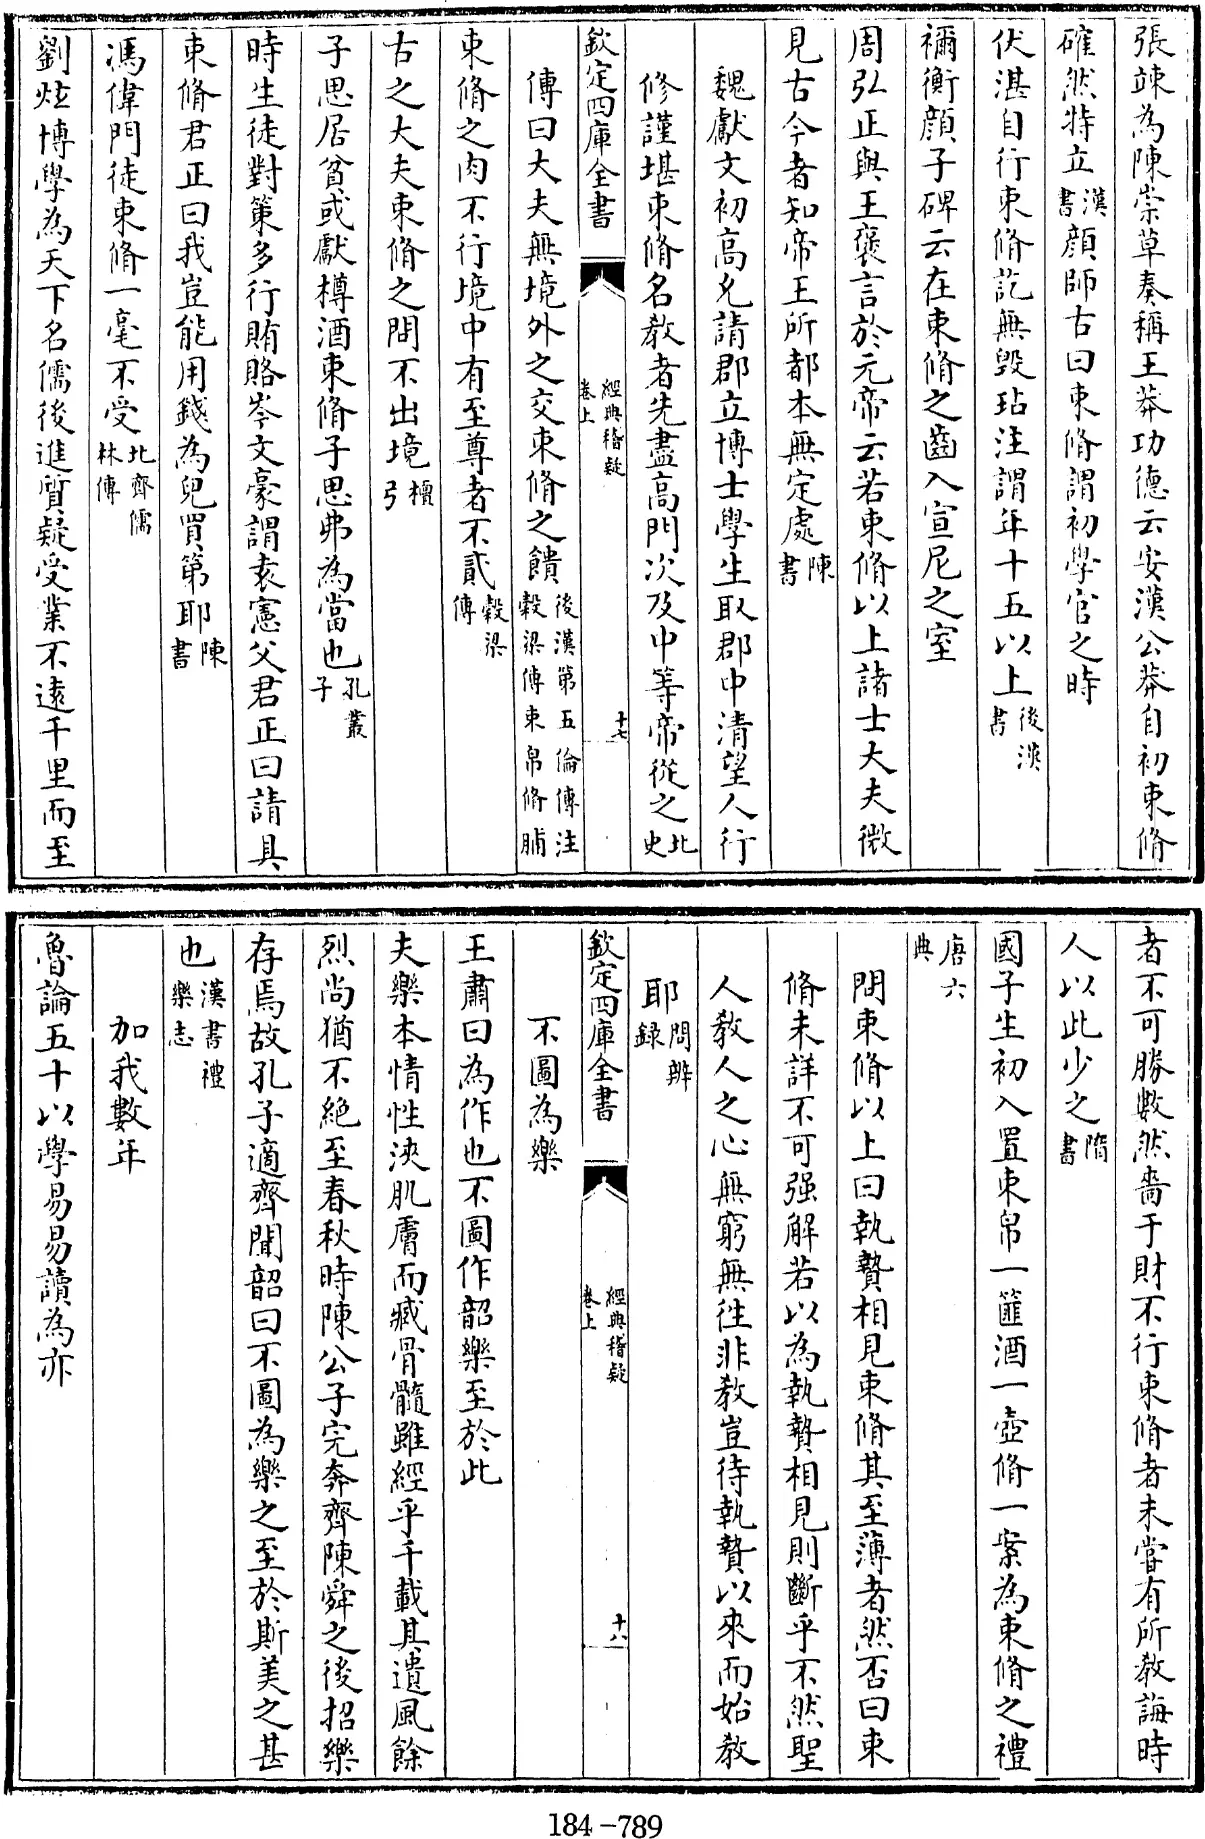 張竦為陳崇草奏稱王莽功德云安漢公莽自初束脩
確然特立漢書顔師古曰束脩謂初學官之時
伏湛自行束脩訖無毁玷注謂年十五以上後漢書
禰衡顔子碑云在束脩之齒入宣尼之室
周弘正與王褒言於元帝云若束脩以上諸士大夫微
見古今者知帝王所都本無定處陳書
魏獻文初高允請郡立博士學生取郡中清望人行
修謹堪束脩名教者先盡高門次及中等帝從之北史
欽定四庫全書
經典稽疑
卷上
十七
傳曰大夫無境外之交束脩之饋後漢第五倫傳注穀梁傳束帛脩脯
束脩之肉不行境中有至尊者不貳穀梁傳
古之大夫束脩之問不出境檀弓
子思居貧或獻樽酒束脩子思弗為當也孔叢子
時生徒對策多行賄賂岑文豪謂袁憲父君正曰請具
束脩君正曰我豈能用錢為兒買第耶陳書
馮偉門徒束脩一毫不受北齊儒林傳
劉炫博學為天下名儒後進質疑受業不遠千里而至
者不可勝數然嗇于財不行束脩者未嘗有所教誨時
人以此少之隋書
國子生初入置束帛一篚酒一壺脩一案為束脩之禮
唐六典
問束脩以上曰執贄相見束脩其至薄者然否曰束
脩未詳不可强解若以為執贄相見則斷乎不然聖
人教人之心無窮無往非教豈待執贄以來而始教
耶問辨録
欽定四庫全書
經典稽疑
卷上
十八
不圖為樂
王肅曰為作也不圖作韶樂至於此
夫樂本情性浹肌膚而臧骨髓雖經乎千載其遺風餘
烈尚猶不絶至春秋時陳公子完奔齊陳舜之後招樂
存焉故孔子適齊聞韶曰不圖為樂之至於斯美之甚
也漢書禮樂志
加我數年
魯論五十以學易易讀為亦
184-789